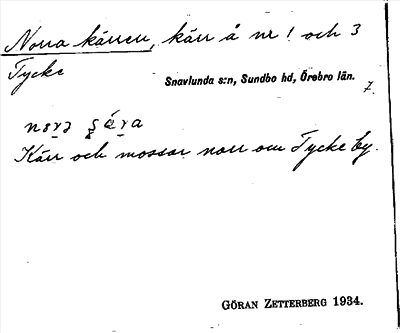 Norra kärren, kärr å nr 1 och 3
Tycke
Snavlunda s:n, Sundbo hd, Örebro län.
7.
Kärr och mossar norr om Tycke by.
GÖRAN ZETTERBERG 1934.